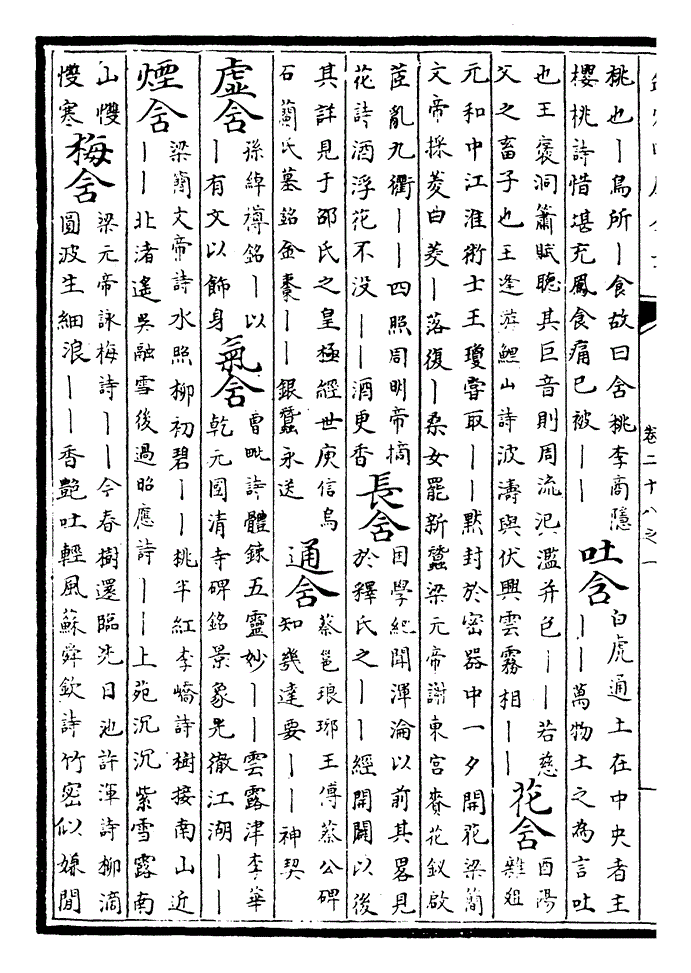 桃也丨鳥所丨食故曰含桃李商隱
櫻桃詩惜堪充鳳食痛已被丨丨
吐含
白虎通土在中央者主
丨丨萬物土之為言吐
也王褒洞簫賦聽其巨音則周流汜濫并包丨丨若慈
父之畜子也王逢游鯉山詩波濤與伏興雲霧相丨丨
花含
酉陽
雜俎
元和中江淮術士王瓊嘗取丨丨黙封於密器中一夕開花梁簡
文帝採菱曲菱丨落復丨桑女罷新蠶梁元帝謝東宮賚花釵啟
苣亂九衢丨丨四照周明帝摘
花詩酒浮花不没丨丨酒更香
長含
困學紀聞渾淪以前其畧見
於釋氏之丨丨經開闢以後
其詳見于邵氏之皇極經世庾信烏
石蘭氏墓銘金棗丨丨銀蠶永送
通含
蔡邕琅琊王傅蔡公碑
知幾達要丨丨神契
虛含
孫綽樽銘丨以
丨有文以飾身
氣含
曹毗詩體鍊五靈妙丨丨雲露津李華
乾元國清寺碑銘景象光徹江湖丨丨
煙含
梁簡文帝詩水照柳初碧丨丨桃半紅李嶠詩樹接南山近
丨丨北渚遙吳融雪後過昭應詩丨丨上苑沉沉紫雪露南
山慢
慢寒
梅含
梁元帝詠梅詩丨丨今春樹還臨先日池許渾詩柳滴
圓波生細浪丨丨香艷吐輕風蘇舜欽詩竹密似嫌閒
卷二十八之一